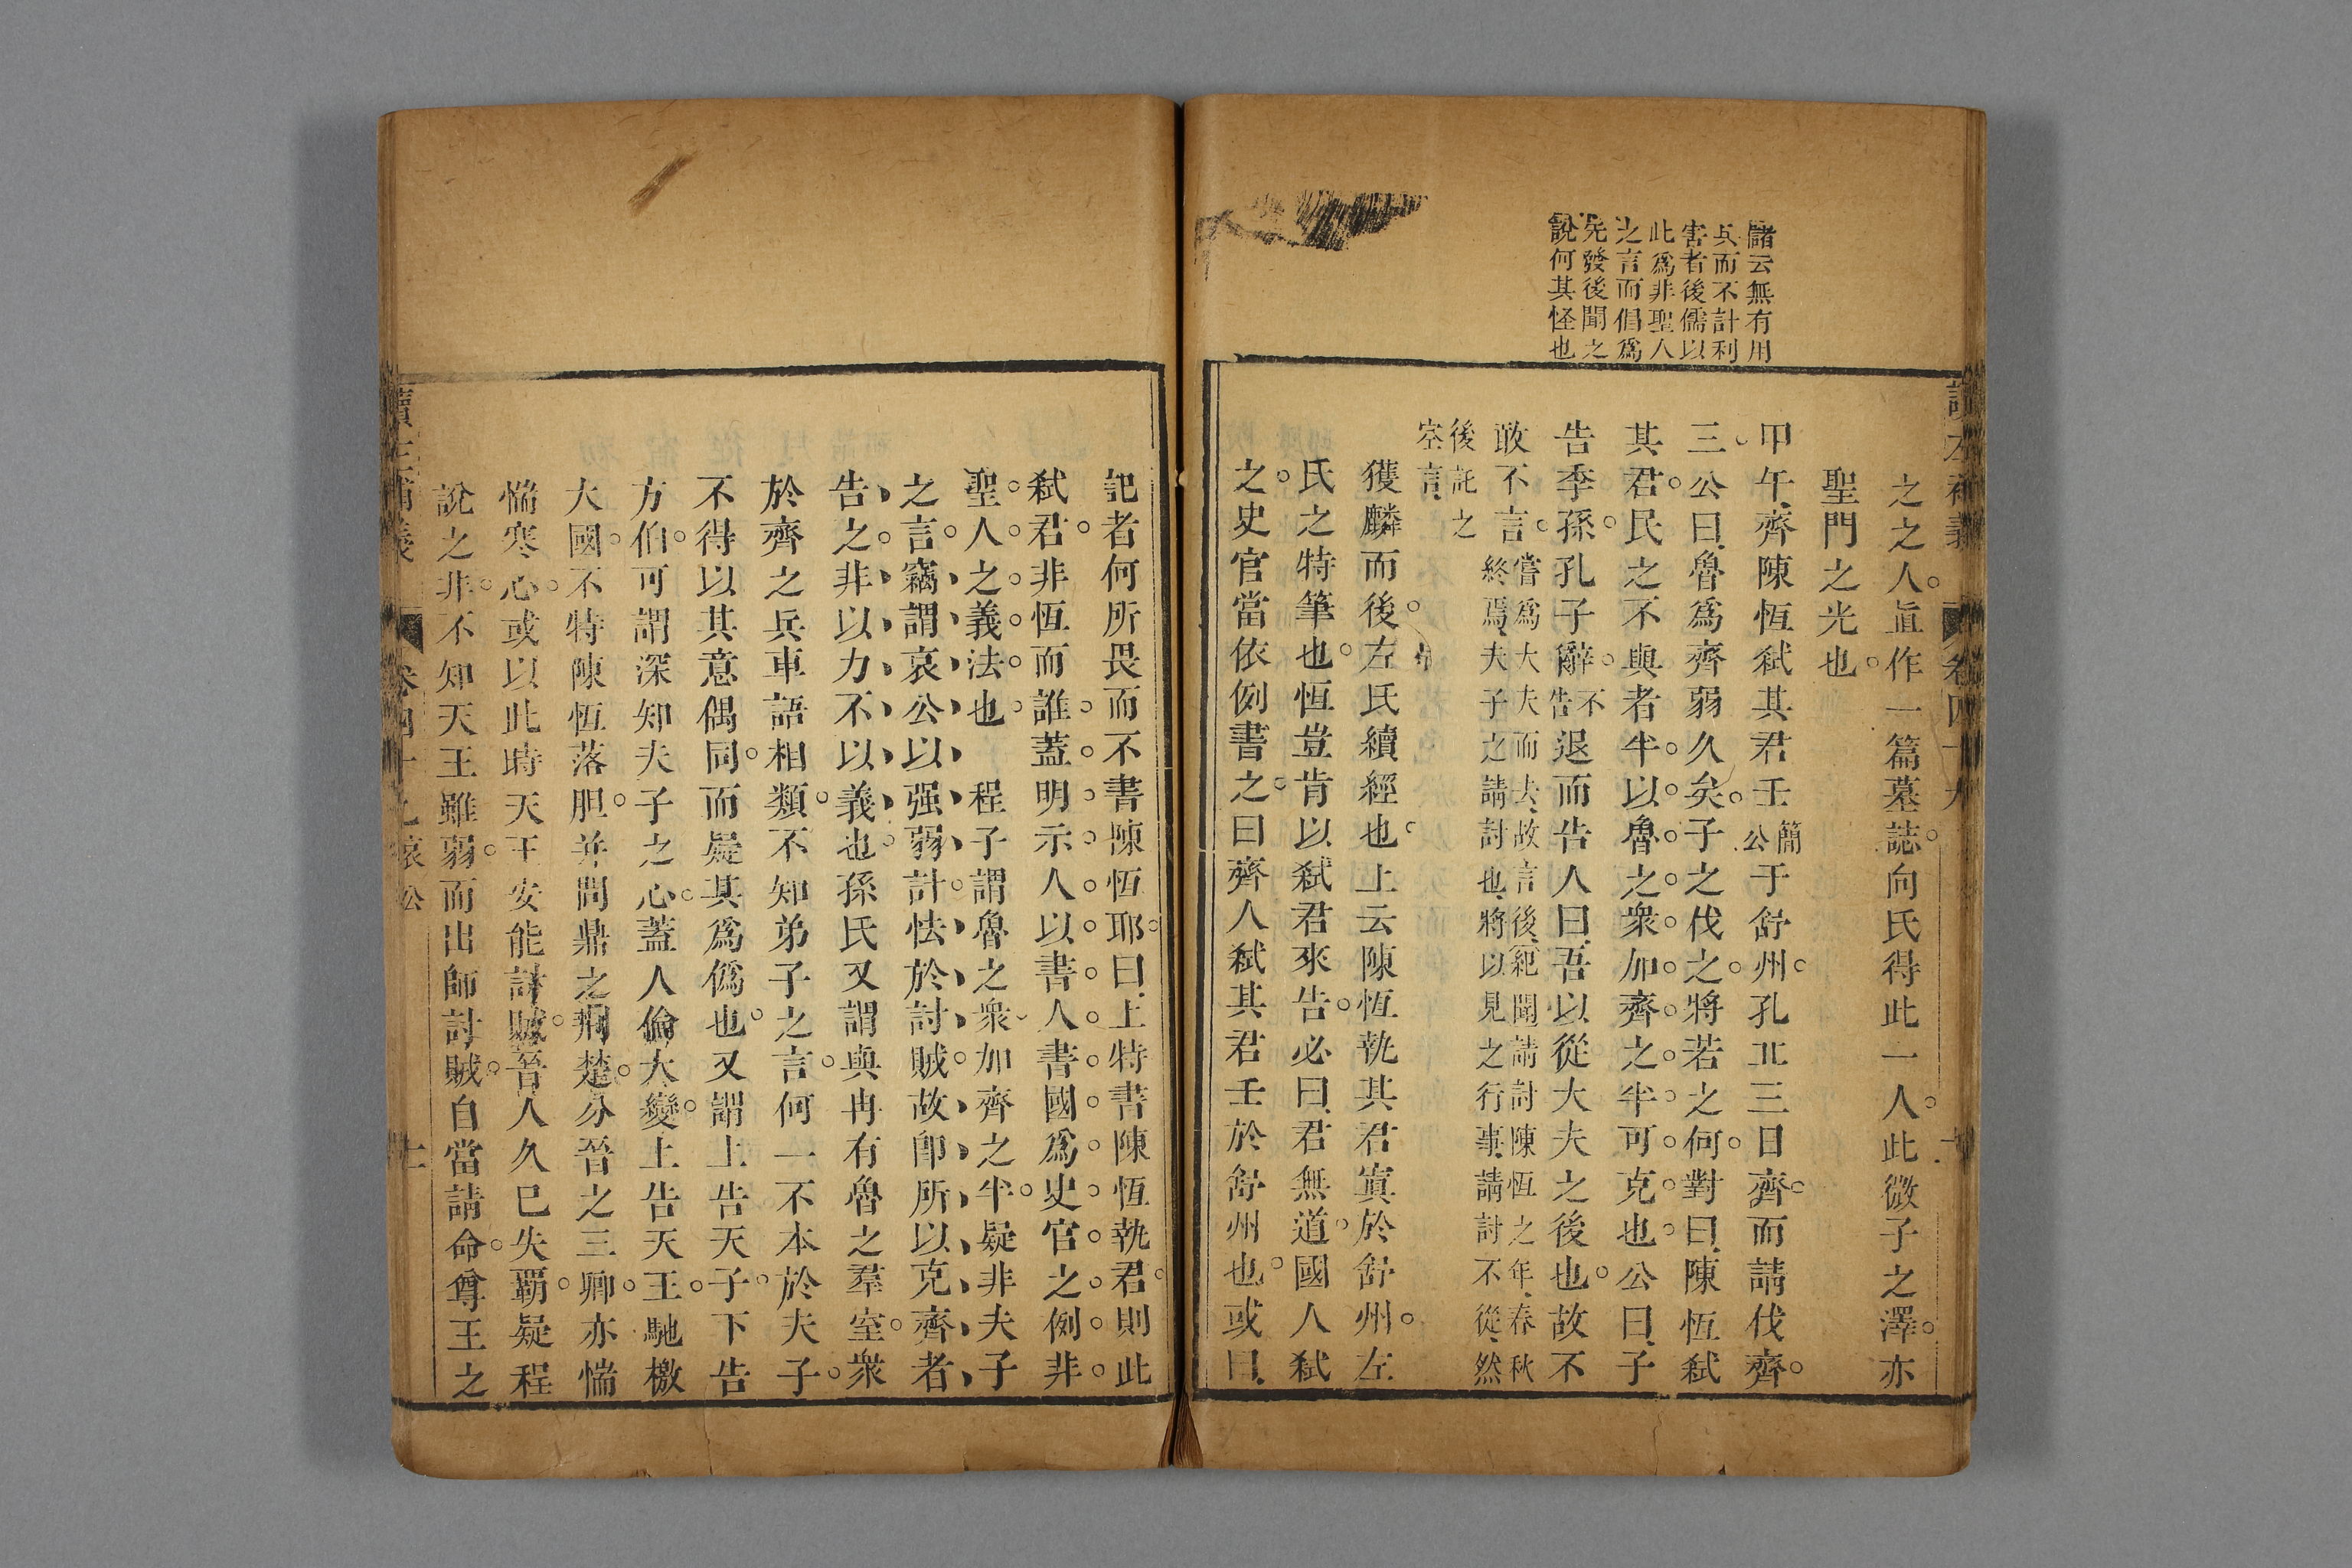 儲云無有用
兵而不計利
害者後儒以
此爲非聖人
之言而倡爲
先發後聞之
說何其怪也
之之人眞作一篇墓誌向氏得此一人此微子之澤亦
聖門之光也
甲午齊陳恆弑其君壬簡公于舒州孔丘三日齊而請伐齊
三公曰魯爲齊弱久矣子之伐之將若之何對曰陳恆弑
其君民之不與者半以魯之衆加齊之半可克也公曰子
告季孫孔子辭不告退而告人曰吾以從大夫之後也故不
敢不言嘗爲大夫而去故言後犯聞請討陳恆之年春秋
終焉夫子之請討也將以見之行事請討不從然
後託之
空言
獲麟而後左氏續經也上云陳恆執其君寘於舒州左
氏之特筆也恆豈肯以弑君來告必曰君無道國人弑
之史官當依例書之曰齊人弑其君壬於舒州也或曰
記者何所畏而不書陳恆耶曰上特書陳恆執君則此
弑君非恆而誰蓋明示人以書人書國爲史官之例非
聖人之義法也 程子謂魯之衆加齊之半疑非夫子
之言竊謂哀公以强弱計怯於討賊故卽所以克齊者
告之非以力不以義也孫氏又謂與冉有魯之羣室衆
於齊之兵車語相類不知弟子之言何一不本於夫子
不得以其意偶同而疑其爲僞也又謂上告天子下告
方伯可謂深知夫子之心蓋人倫大變上告天王馳檄
大國不特陳恆落胆并問鼎之荆楚分晉之三卿亦惴
惴寒心或以此時天王安能討賊吾人久已失覇疑程
說之非不知天王雖弱而出師討賊自當請命尊王之
讀左補義
卷四十九
卷四十九哀公